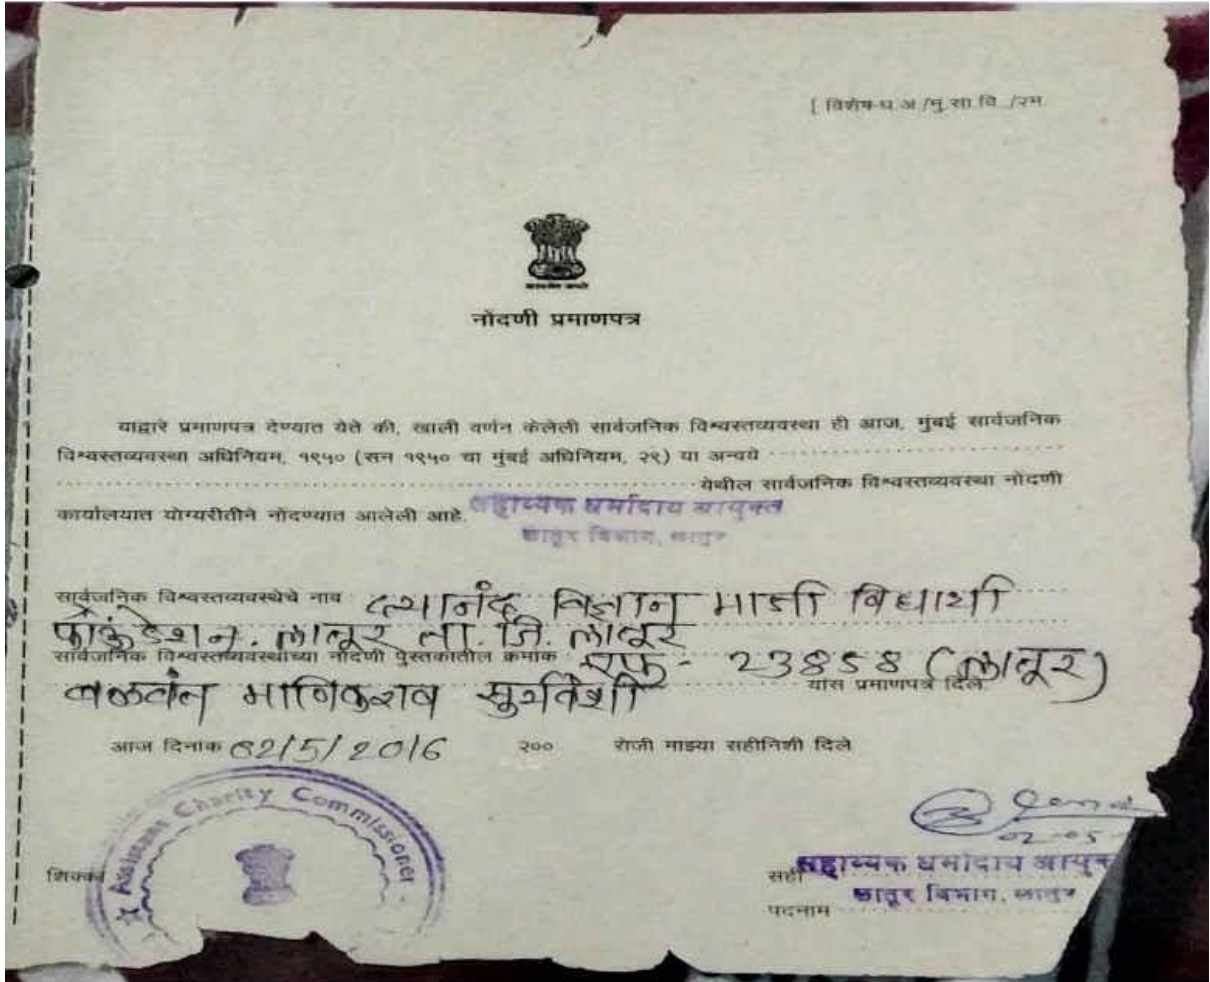 [ विशेष-ध.अ./मु.सा.वि../२म.
नोंदणी प्रमाणपत्र
याद्वारे प्रमाणपत्र देण्यात येते की, खाली वर्णन केलेली सार्वजनिक विश्वस्तव्यवस्था ही आज, मुंबई सार्वजनिक
विश्वस्तव्यवस्था अधिनियम, १९५० (सन १९५० चा मुंबई अधिनियम, २९) या अन्वये
येथील सार्वजनिक विश्वस्तव्यवस्था नोंदणी
कार्यालयात योग्यरीतीने नोंदण्यात आलेली आहे. सहाय्यक धर्मादाय आयुक्त
लातूर विभाग, लातूर
सार्वजनिक विश्वस्तव्यवस्थेचे नाव दयानंद विज्ञान माजी विद्यार्थी
फाऊंडेशन. लातूर ता. जि. लातूर
सार्वजनिक विश्वस्तव्यवस्थांच्या नोंदणी पुस्तकातील क्रमांक एफ - 23858 (लातूर)
माणिकराव सुर्यवंशी यांस प्रमाणपत्र दिले
आज दिनांक 02/5/2016 २०० रोजी माझ्या सहीनिशी दिले.
Assistant Charity Commissioner
02-05-
शिक्का
सही सहाय्यक धर्मादाय आयुक्त
लातूर विभाग, लातूर
पदनाम